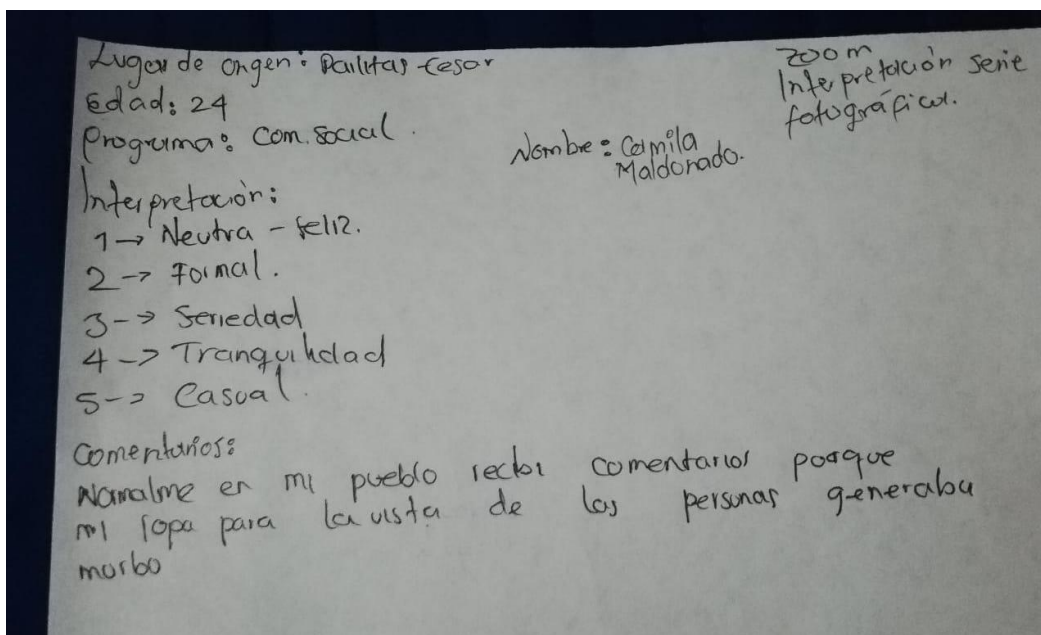 Lugar de origen: Pailitas Cesar
Edad: 24
Programa: Com. social.
Zoom
Interpretación serie
fotográfica.
Nombre: Camila
Maldonado.
Interpretación:
1 → Neutra - feliz.
2 → Formal.
3 → Seriedad
4 → Tranquilidad
5 → Casual.
Comentarios:
Normalme en mi pueblo recibi comentarios porque
mi ropa para la vista de las personas generaba
morbo